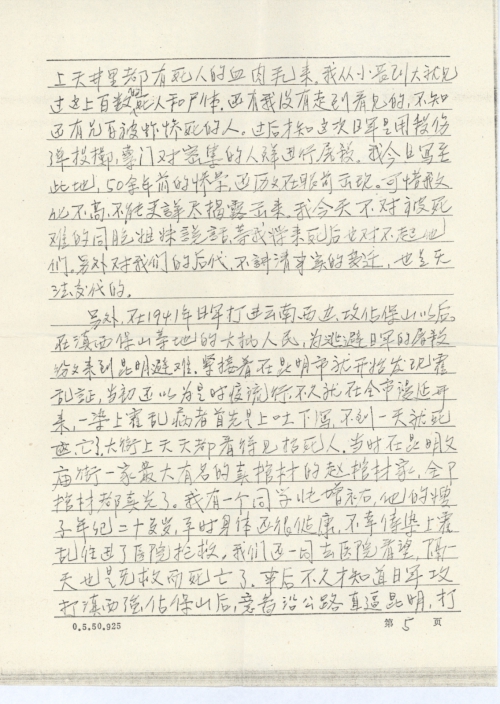 上天井里都有死人的血肉毛来。我从小活到大就见
过这上百数的死人和尸体，还有我没有走到看见的，不知
还有几百被炸惨死的人。过后才知这次日军是用杀伤
弹投掷，专门对密集的人群进行屠杀。我今日写至
此地，50余年前的惨景，还历历在眼前出现。可惜我文
化不高，不能其详尽揭露出来。我今天不对被死
难的同胞姐妹说话，等我将来死后也对不起他
们。另外对我们的后代，不讲清事实的变迁，也是无
法交代的。
另外，在1941年日军打进云南西边，攻佔保山以后，
在滇西保山等地的大批人民，为逃避日军的屠杀
纷纷来到昆明避难，紧接着在昆明市就开始发现霍
乱証，当初还以为是时疫流行，不久就在全市漫延开
来，一染上霍乱病者首先是上吐下泻，不到一天就死
亡了。大街上天天都看得见抬死人，当时在昆明文
庙街一家最大有名的卖棺材的赵棺材家，全部
棺材都卖光了。我有一个同学
子年纪二十多岁，平时身体还很健康，不幸传染上霍
乱住进了医院抢救。我们还一同去医院看望，隔一
天也是无救而死亡了。事后不久才知道日军攻
打滇西强佔保山后，意者沿公路直逼昆明，打
0.5.50.925
第5页